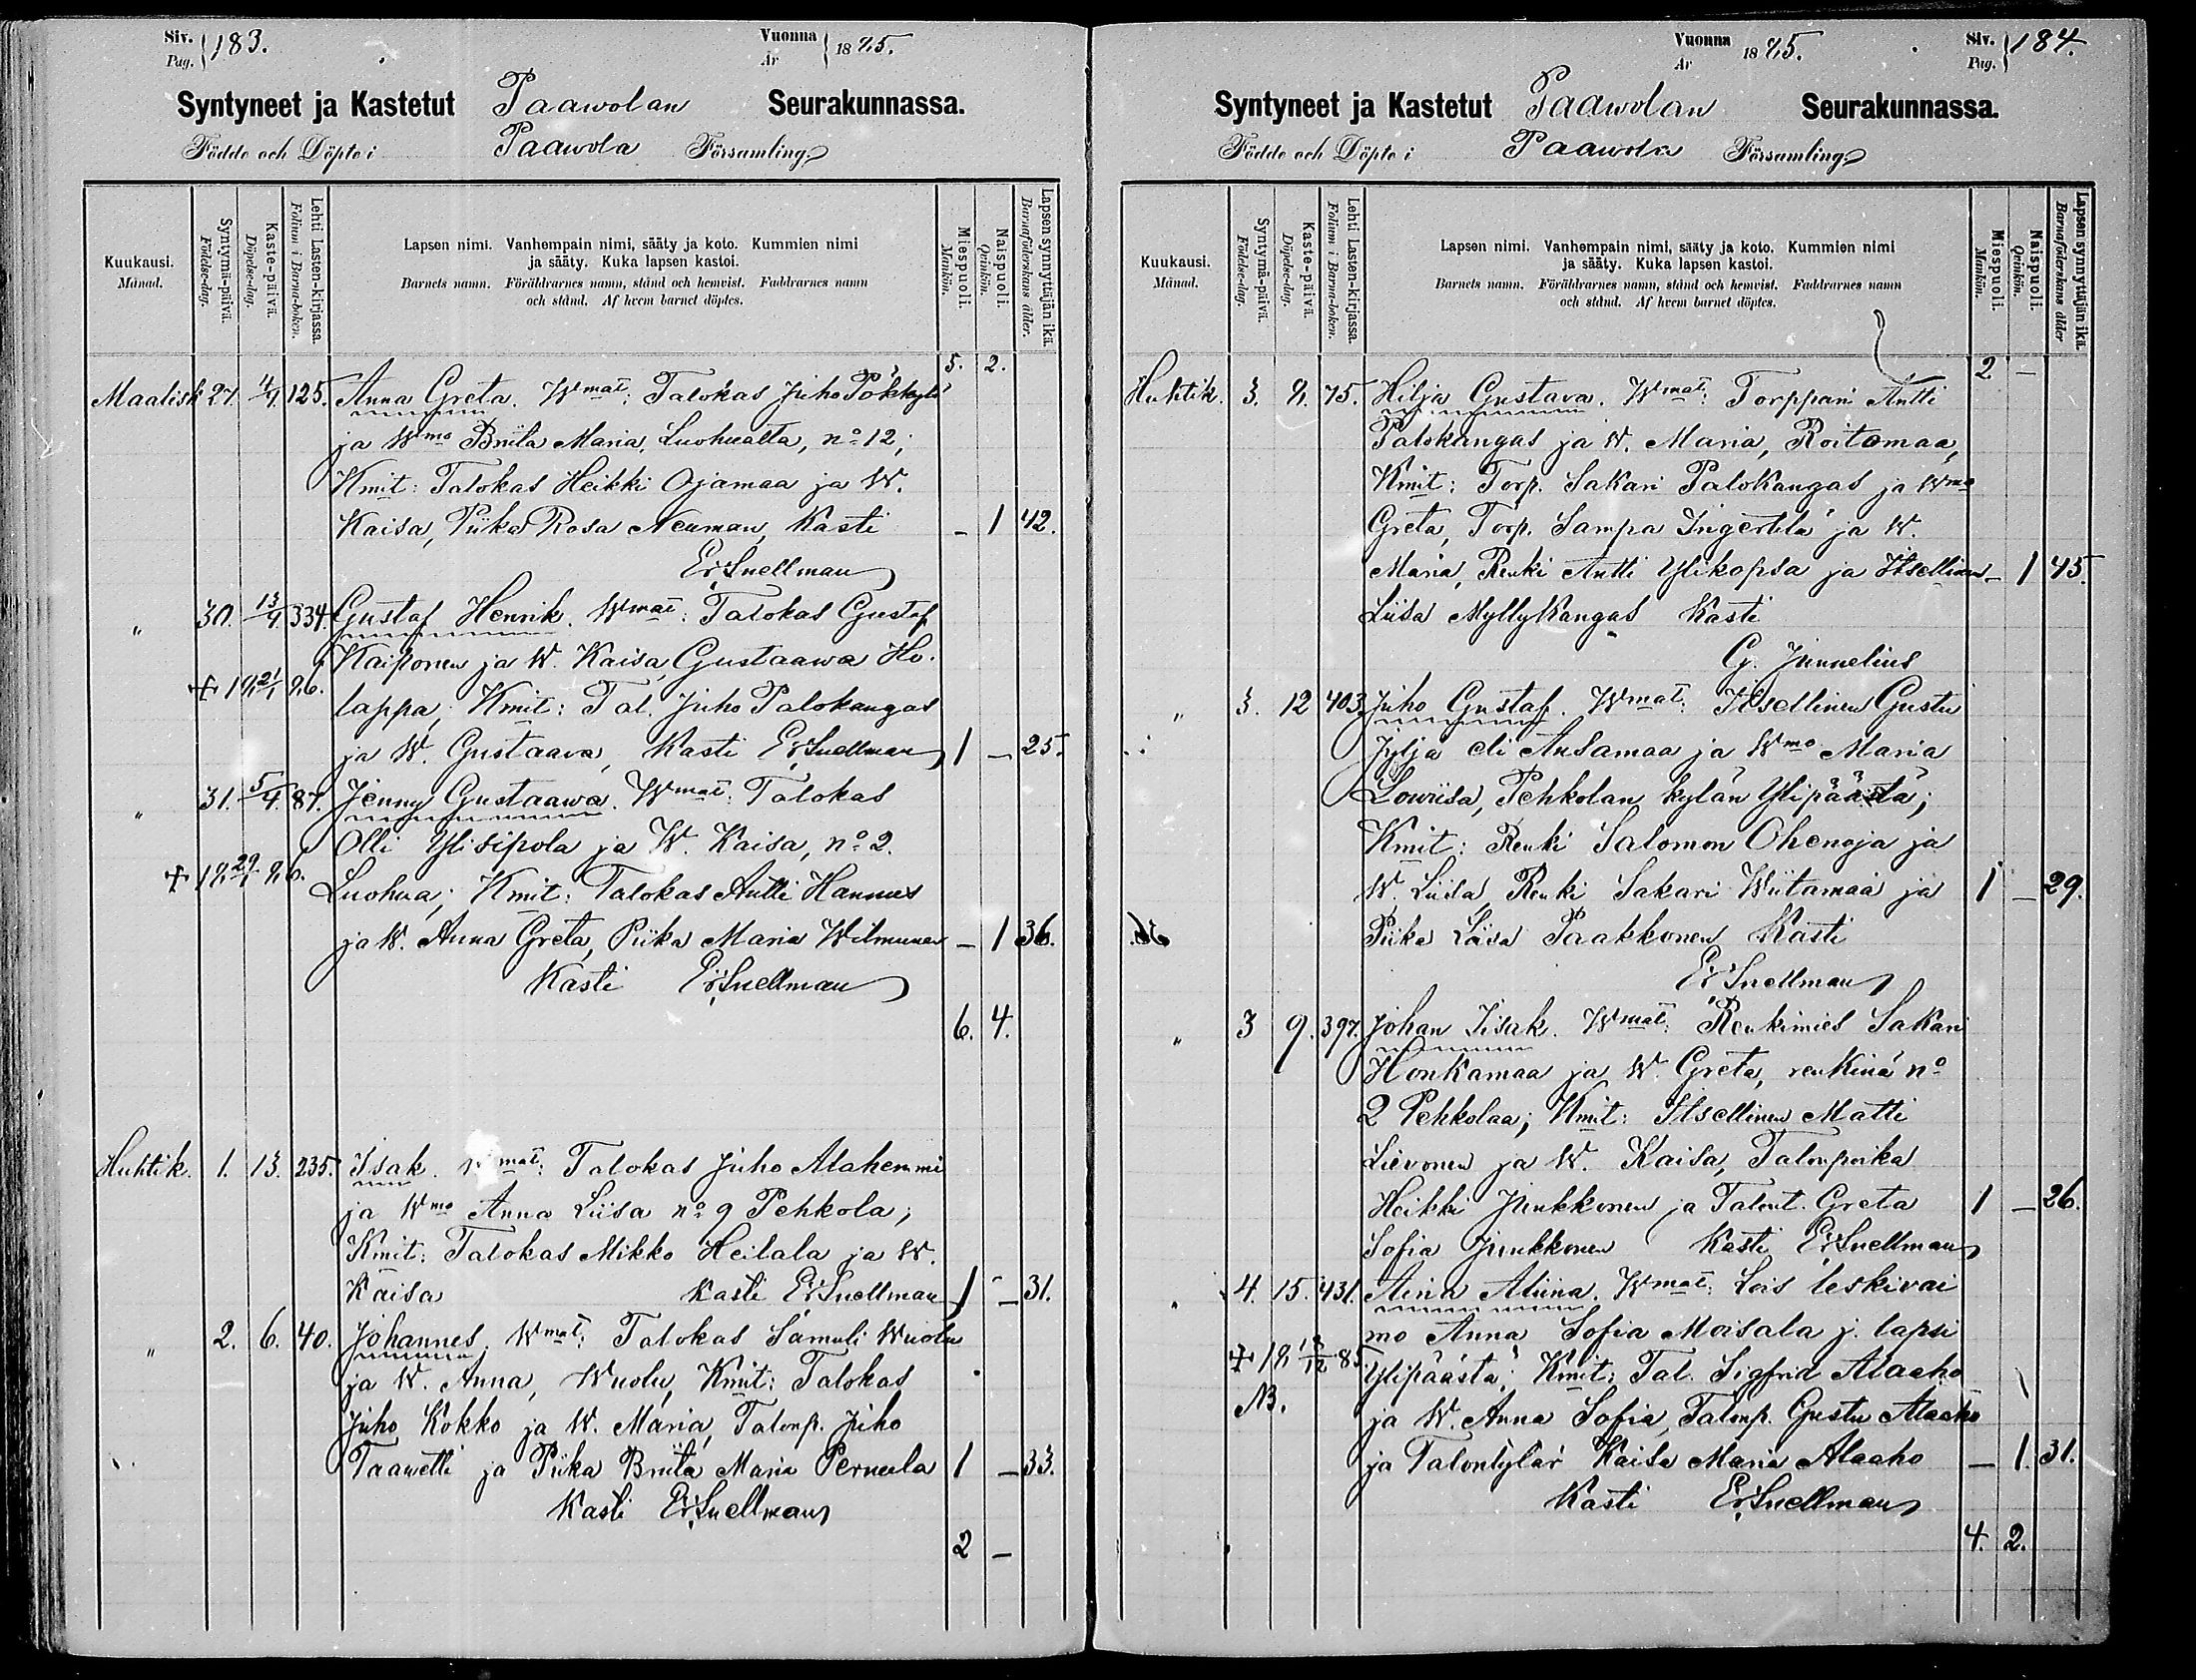 Siv. Pag. 183.
Vuonna År 1875.
Syntyneet ja Kastetut Paawolan Seurakunnassa.
Födde och Döpte i Paawola Församling.
Kuukausi. Månad.
Syntymä-päivä. Födelse-dag.
Kaste-päivä. Döpelse-dag.
Lehti Lasten-kirjassa. Folium i Barna-boken.
Lapsen nimi. Vanhempain nimi, sääty ja koto. Kummien nimi
ja sääty. Kuka lapsen kastoi.
Barnets namn. Föräldrarnes namn, stånd och hemvist. Faddrarnes namn
och stånd. Af hvem barnet döptes.
Miespuoli. Mankön.
Naispuoli. Qvinkön.
Lapsen synnyttäjän ikä. Barnaföderskans ålder.
5. 2.
Maalisk 27. 4/4 125. Anna Greta. Wmat: Talokas Juho Pökkylä
ja Wmo Briita Maria, Luohualta, no 12;
Kmit: Talokas Heikki Ojamaa ja W.
Kaisa, Piika Rosa Neuman, Kasti – 1 42.
Er. Snellman
" 30. 13/4 334. Gustaf Henrik. Wmat: Talokas Gustaf
Kaiponen ja W. Kaisa Gustaawa Ho-
lappa; Kmit: Tal. Juho Palokangas
ja W. Gustaava, Kasti Er. Snellman 1 – 25.
" 31. 5/4 87. Jenny Gustaawa. Wmat: Talokas
Olli Ylisipola ja W. Kaisa, no 2.
Luohua; Kmit: Talokas Antti Hannus
ja W. Anna Greta, Piika Maria Wilmunen – 1 36.
Kasti Er. Snellman
6. 4.
Huhtik. 1. 13. 235. Isak. Wmat: Talokas Juho Alahemmi
ja Wmo Anna Liisa no 9 Pehkola;
Kmit: Talokas Mikko Heilala ja W.
Kaisa Kasti Er. Snellman 1 – 31.
" 2. 6. 40. Johannes. Wmat: Talokas Samuli Wuolu
ja W. Anna, Wuolu, Kmit: Talokas
Juho Kokko ja W. Maria, Talonp. Juho
Taawetti ja Piika Briita Maria Pernula 1 – 33.
Kasti Er. Snellman
2 –
Vuonna År 1875.
Siv. Pag. 184.
Syntyneet ja Kastetut Paawolan Seurakunnassa.
Födde och Döpte i Paawola Församling.
Kuukausi. Månad.
Syntymä-päivä. Födelse-dag.
Kaste-päivä. Döpelse-dag.
Lehti Lasten-kirjassa. Folium i Barna-boken.
Lapsen nimi. Vanhempain nimi, sääty ja koto. Kummien nimi
ja sääty. Kuka lapsen kastoi.
Barnets namn. Föräldrarnes namn, stånd och hemvist. Faddrarnes namn
och stånd. Af hvem barnet döptes.
Miespuoli. Mankön.
Naispuoli. Qvinkön.
Lapsen synnyttäjän ikä. Barnaföderskans ålder
2 –
Huhtik. 3. 75. Hilja Gustava. Wmat: Torppari Antti
Palokangas ja W. Maria, Roitomaa,
Kmit: Torp. Sakari Palokangas ja Wmo
Greta, Torp. Sampa Ingertilä ja W.
Maria, Renki Antti Ylikopsa ja Itsellinen – 1 45.
Liisa Myllykangas Kasti
G. Junnelius
" 3. 12 403. Juho Gustaf. Wmat: Itsellinen Gustu
Jyljä eli Ansamaa ja Wmo Maria
Lowiisa, Pehkolan kylän Ylipäästä;
Kmit: Renki Salomon Ohenoja ja
W. Liisa, Renki Sakari Wiitamaa ja 1 – 29.
Piika Liisa Paakkonen Kasti
Er. Snellman
" 3 9. 397. Johan Iisak. Wmat: Renkimies Sakari
Honkamaa ja W. Greta, renkinä no
2 Pehkolaa; Kmit: Itsellinen Matti
Lievonen ja W. Kaisa, Talonpoika
Heikki Junkkonen ja Talont. Greta 1 – 26.
Sofia Junkkonen Kasti Er. Snellman
" 4. 15. 431. Aina Aliina. Wmat: Lois leskivai
mo Anna Sofia Moisala j. lapsi
Ylipäästä; Kmit: Tal. Sigfrid Alaaho
NB. ja W. Anna Sofia, Talonp. Gustu Alaaho
ja Talontytär Kaisa Maria Alaaho – 1. 31.
Kasti Er. Snellman
4. 2.